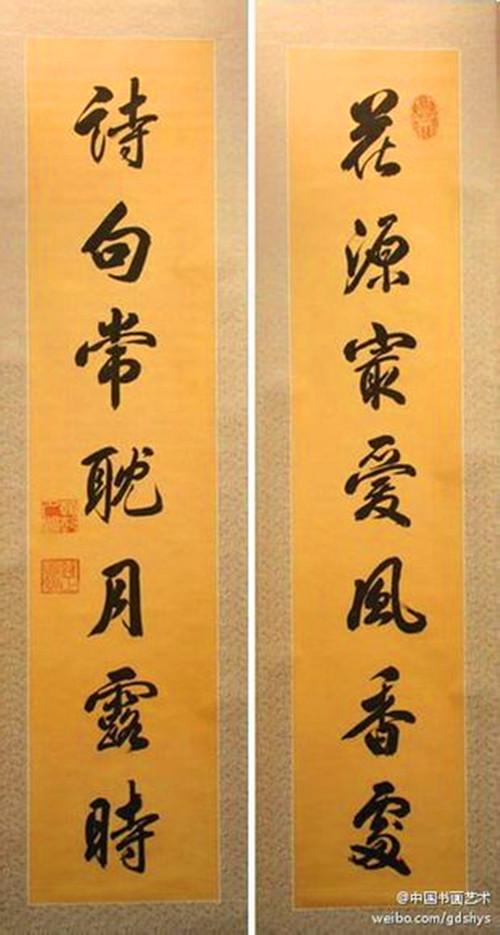 花源㝡爱風香處
詩句常耽月露時
@中国书画艺术
weibo.com/gdshys